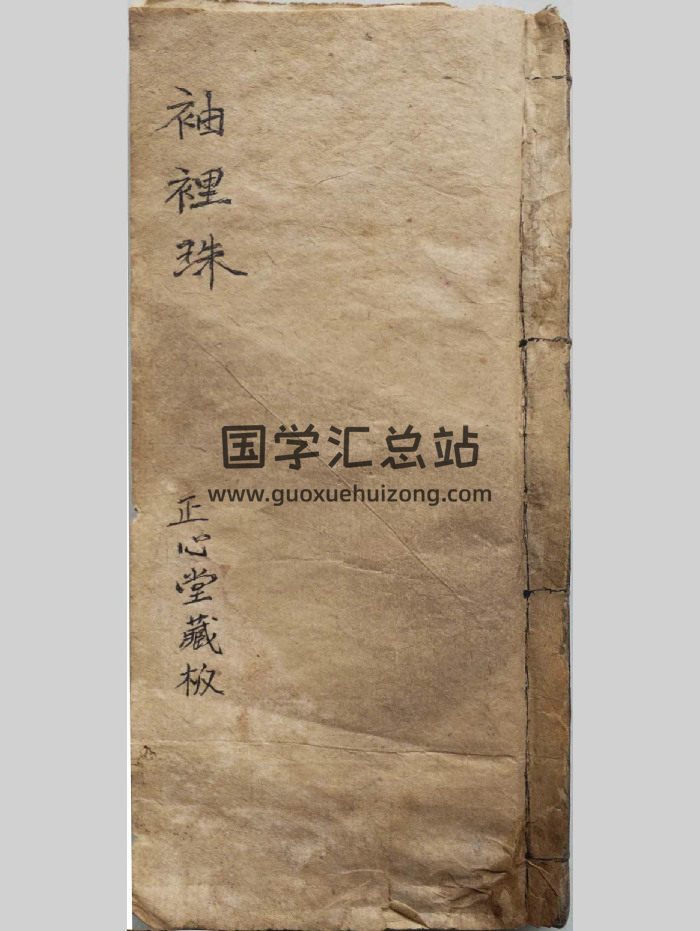 袖裡珠
正心堂藏板
国学汇总站
www.guoxuehuizong.com